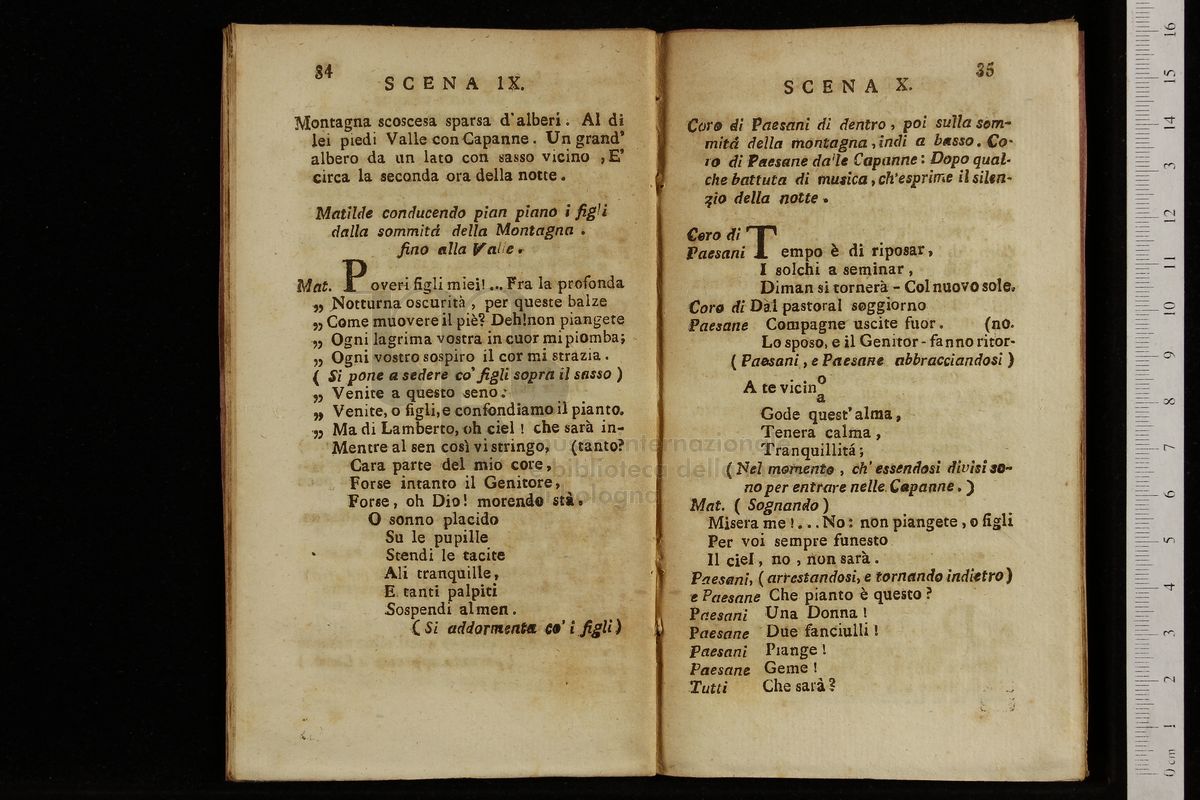 34
SCENA IX.
Montagna scoscesa sparsa d'alberi. Al di
lei piedi Valle con Capanne. Un grand'
albero da un lato con sasso vicino, E'
circa la seconda ora della notte.
Matilde conducendo pian piano i figli
dalla sommitá della Montagna.
fino alla Valle.
Mat. Poveri figli miei!... Fra la profonda
„ Notturna oscurità, per queste balze
„ Come muovere il piè? Deh! non piangete
„ Ogni lagrima vostra in cuor mi piomba;
„ Ogni vostro sospiro il cor mi strazia.
( Si pone a sedere co' figli sopra il sasso )
„ Venite a questo seno:
„ Venite, o figli, e confondiamo il pianto.
„ Ma di Lamberto, oh ciel! che sarà in-
Mentre al sen così vi stringo, (tanto?
Cara parte del mio core,
Forse intanto il Genitore,
Forse, oh Dio! morendo stà.
O sonno placido
Su le pupille
Stendi le tacite
Ali tranquille,
E tanti palpiti
Sospendi almen.
( Si addormenta co' i figli )
35
SCENA X.
Coro di Paesani di dentro, poi sulla som-
mitá della montagna, indi a basso. Co-
ro di Paesane dale Capanne: Dopo qual-
che battuta di musica, ch'esprime il silen-
zio della notte.
Coro di Tempo è di riposar,
Paesani I solchi a seminar,
Diman si tornerà - Col nuovo sole.
Coro di Dal pastoral soggiorno
Paesane Compagne uscite fuor. (no.
Lo sposo, e il Genitor - fanno ritor-
( Paesani, e Paesane abbracciandosi )
A te vicino
a
Gode quest' alma,
Tenera calma,
Tranquillitá;
( Nel momento, ch' essendosi divisi so-
no per entrare nelle Capanne. )
Mat. ( Sognando )
Misera me!... No: non piangete, o figli
Per voi sempre funesto
Il ciel, no, non sarà.
Paesani, ( arrestandosi, e tornando indietro )
e Paesane Che pianto è questo?
Paesani Una Donna!
Paesane Due fanciulli!
Paesani Piange!
Paesane Geme!
Tutti Che sarà?
museo internazionale
e biblioteca della
bologna
0 cm 1 2 3 4 5 6 7 8 9 10 11 12 13 14 15 16